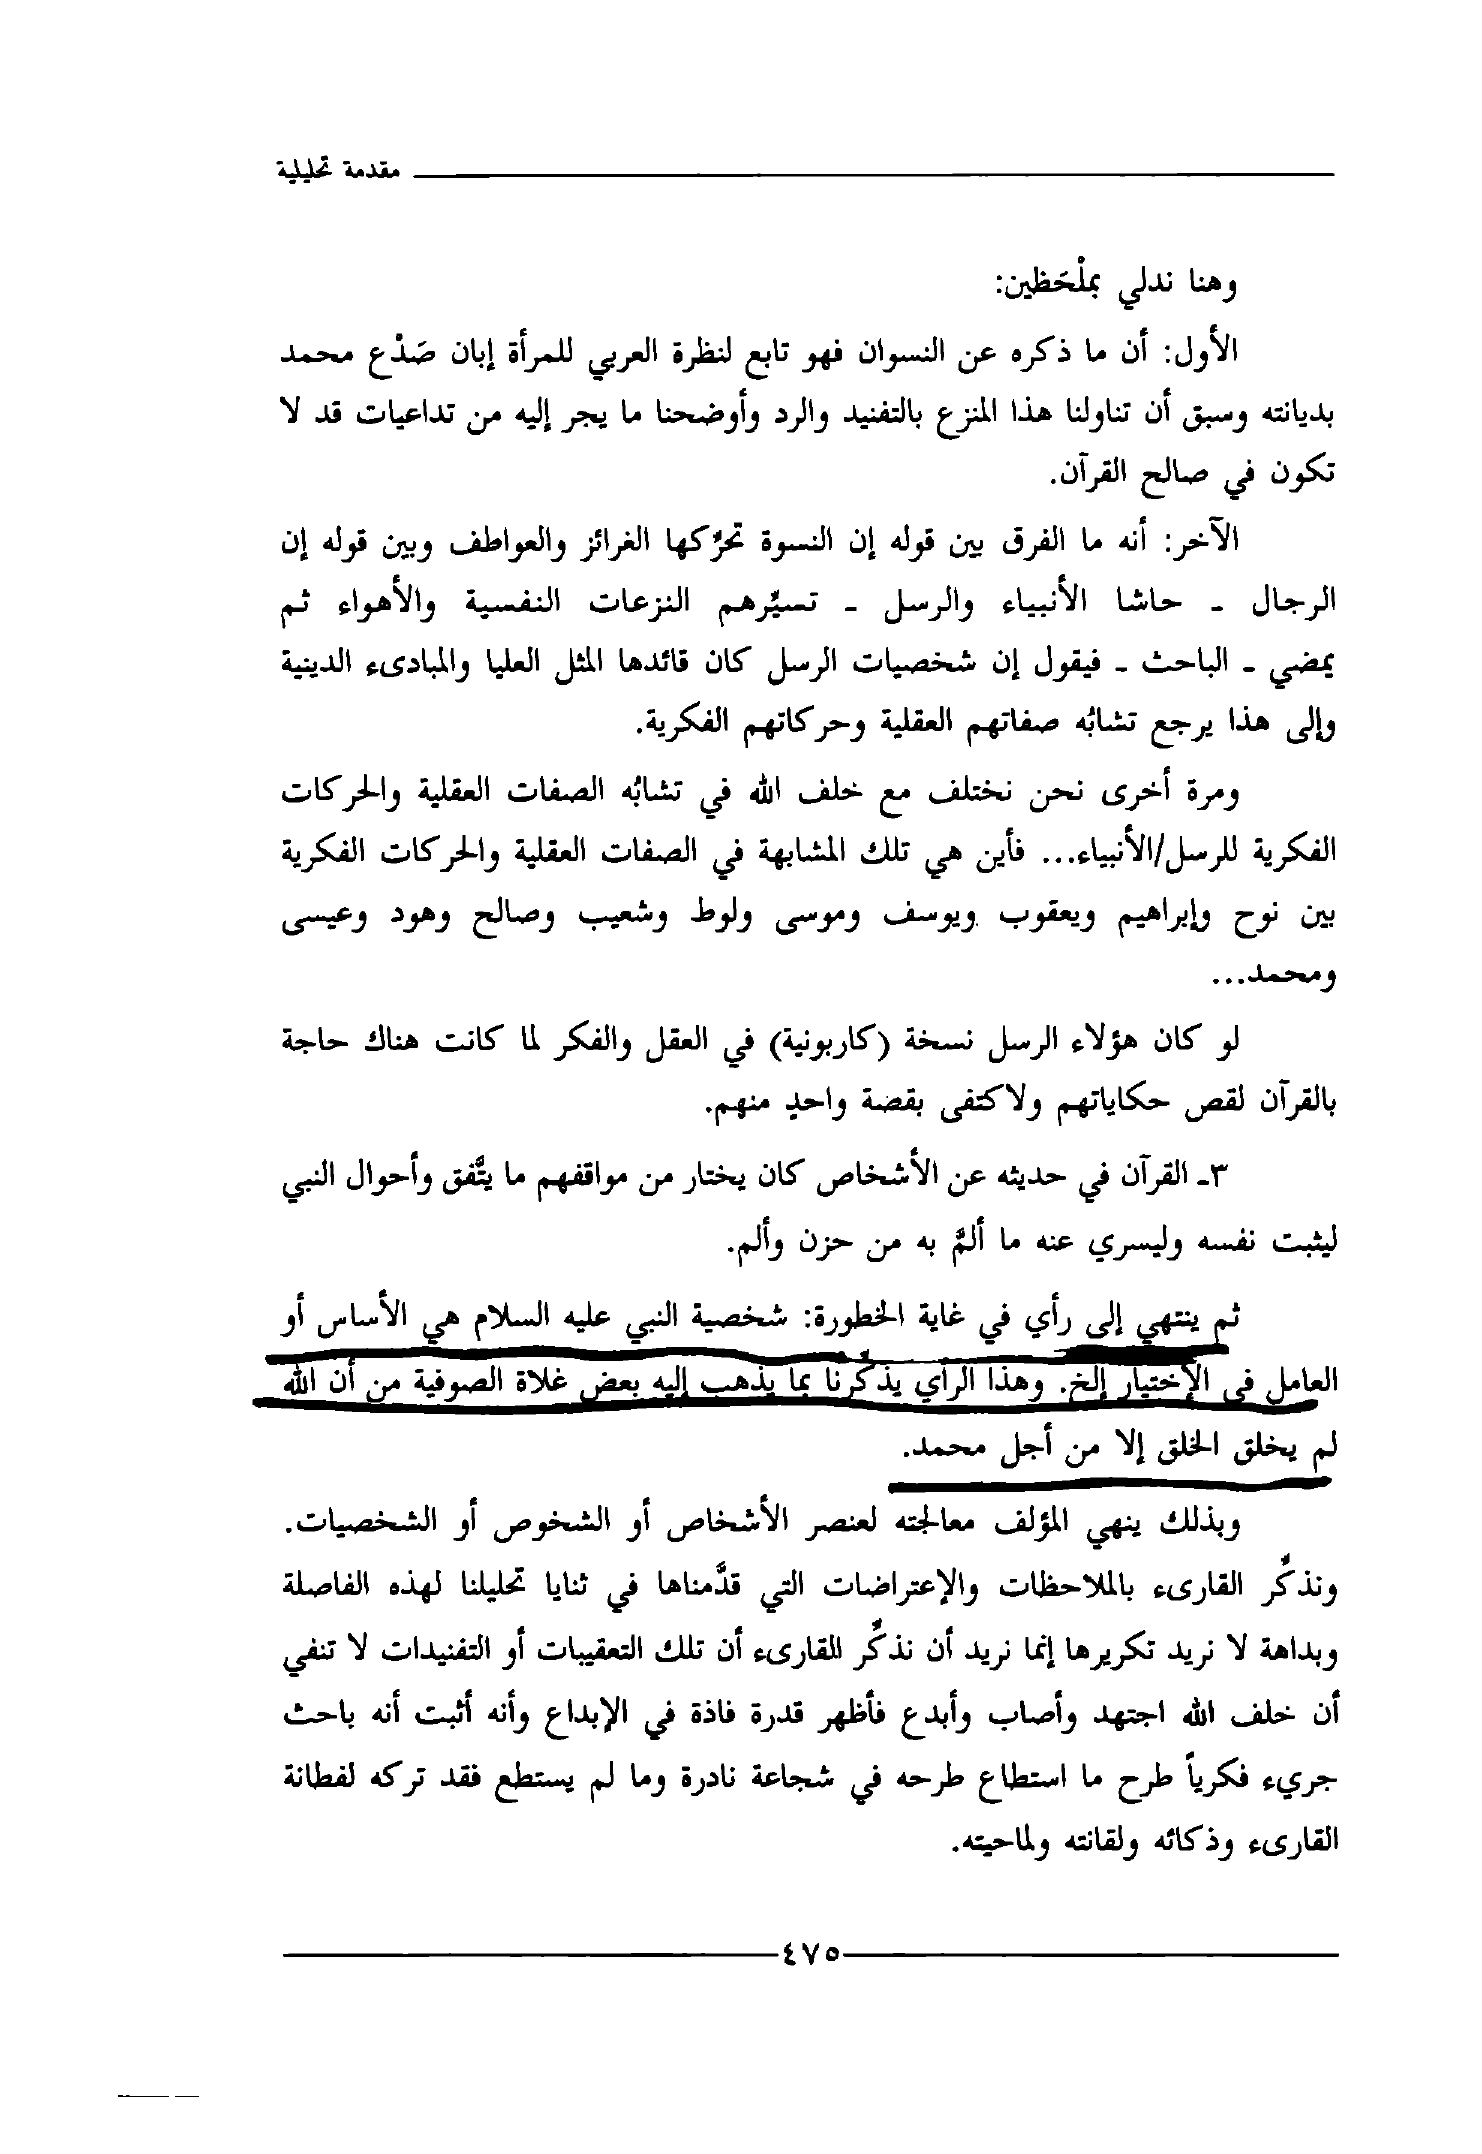 مقدمة تحليلية
وهنا ندلي بملْحَظين:
الأول: أن ما ذكره عن النسوان فهو تابع لنظرة العربي للمرأة إبان صَدْع محمد
بديانته وسبق أن تناولنا هذا المنزع بالتفنيد والرد وأوضحنا ما يجر إليه من تداعيات قد لا
تكون في صالح القرآن.
الآخر: أنه ما الفرق بين قوله إن النسوة تحرِّكها الغرائز والعواطف وبين قوله إن
الرجال - حاشا الأنبياء والرسل - تسيِّرهم النزعات النفسية والأهواء ثم
يمضي - الباحث - فيقول إن شخصيات الرسل كان قائدها المثل العليا والمبادىء الدينية
وإلى هذا يرجع تشابُه صفاتهم العقلية وحركاتهم الفكرية.
ومرة أخرى نحن نختلف مع خلف الله في تشابُه الصفات العقلية والحركات
الفكرية للرسل/الأنبياء... فأين هي تلك المشابهة في الصفات العقلية والحركات الفكرية
بين نوح وإبراهيم ويعقوب ويوسف وموسى ولوط وشعيب وصالح وهود وعيسى
ومحمد...
لو كان هؤلاء الرسل نسخة (كاربونية) في العقل والفكر لما كانت هناك حاجة
بالقرآن لقص حكاياتهم ولاكتفى بقصة واحدٍ منهم.
٣- القرآن في حديثه عن الأشخاص كان يختار من مواقفهم ما يتَّفق وأحوال النبي
ليثبت نفسه وليسري عنه ما ألمَّ به من حزن وألم.
ثم ينتهي إلى رأي في غاية الخطورة: شخصية النبي عليه السلام هي الأساس أو
العامل في الإختيار إلخ. وهذا الرأي يذكِّرنا بما يذهب إليه بعض غلاة الصوفية من أن الله
لم يخلق الخلق إلا من أجل محمد.
وبذلك ينهي المؤلف معالجته لعنصر الأشخاص أو الشخوص أو الشخصيات.
ونذكِّر القارىء بالملاحظات والإعتراضات التي قدَّمناها في ثنايا تحليلنا لهذه الفاصلة
وبداهة لا نريد تكريرها إنما نريد أن نذكِّر القارىء أن تلك التعقيبات أو التفنيدات لا تنفي
أن خلف الله اجتهد وأصاب وأبدع فأظهر قدرة فاذة في الإبداع وأنه أثبت أنه باحث
جريء فكرياً طرح ما استطاع طرحه في شجاعة نادرة وما لم يستطع فقد تركه لفطانة
القارىء وذكائه ولقانته ولماحيته.
٤٧٥